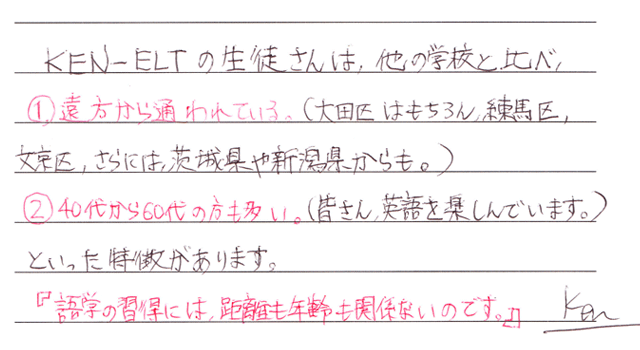 KEN-ELTの生徒さんは、他の学校と比べ、
①遠方から通われている。(大田区はもちろん、練馬区、
文京区、さらには、茨城県や新潟県からも。)
②40代から60代の方も多い。(皆さん、英語を楽しんでいます。)
といった特徴があります。
『語学の習得には、距離も年齢も関係ないのです。』 Ken